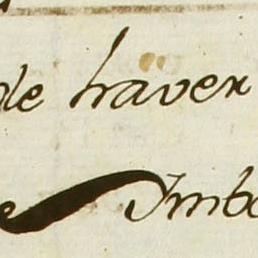 de haver
Imbo